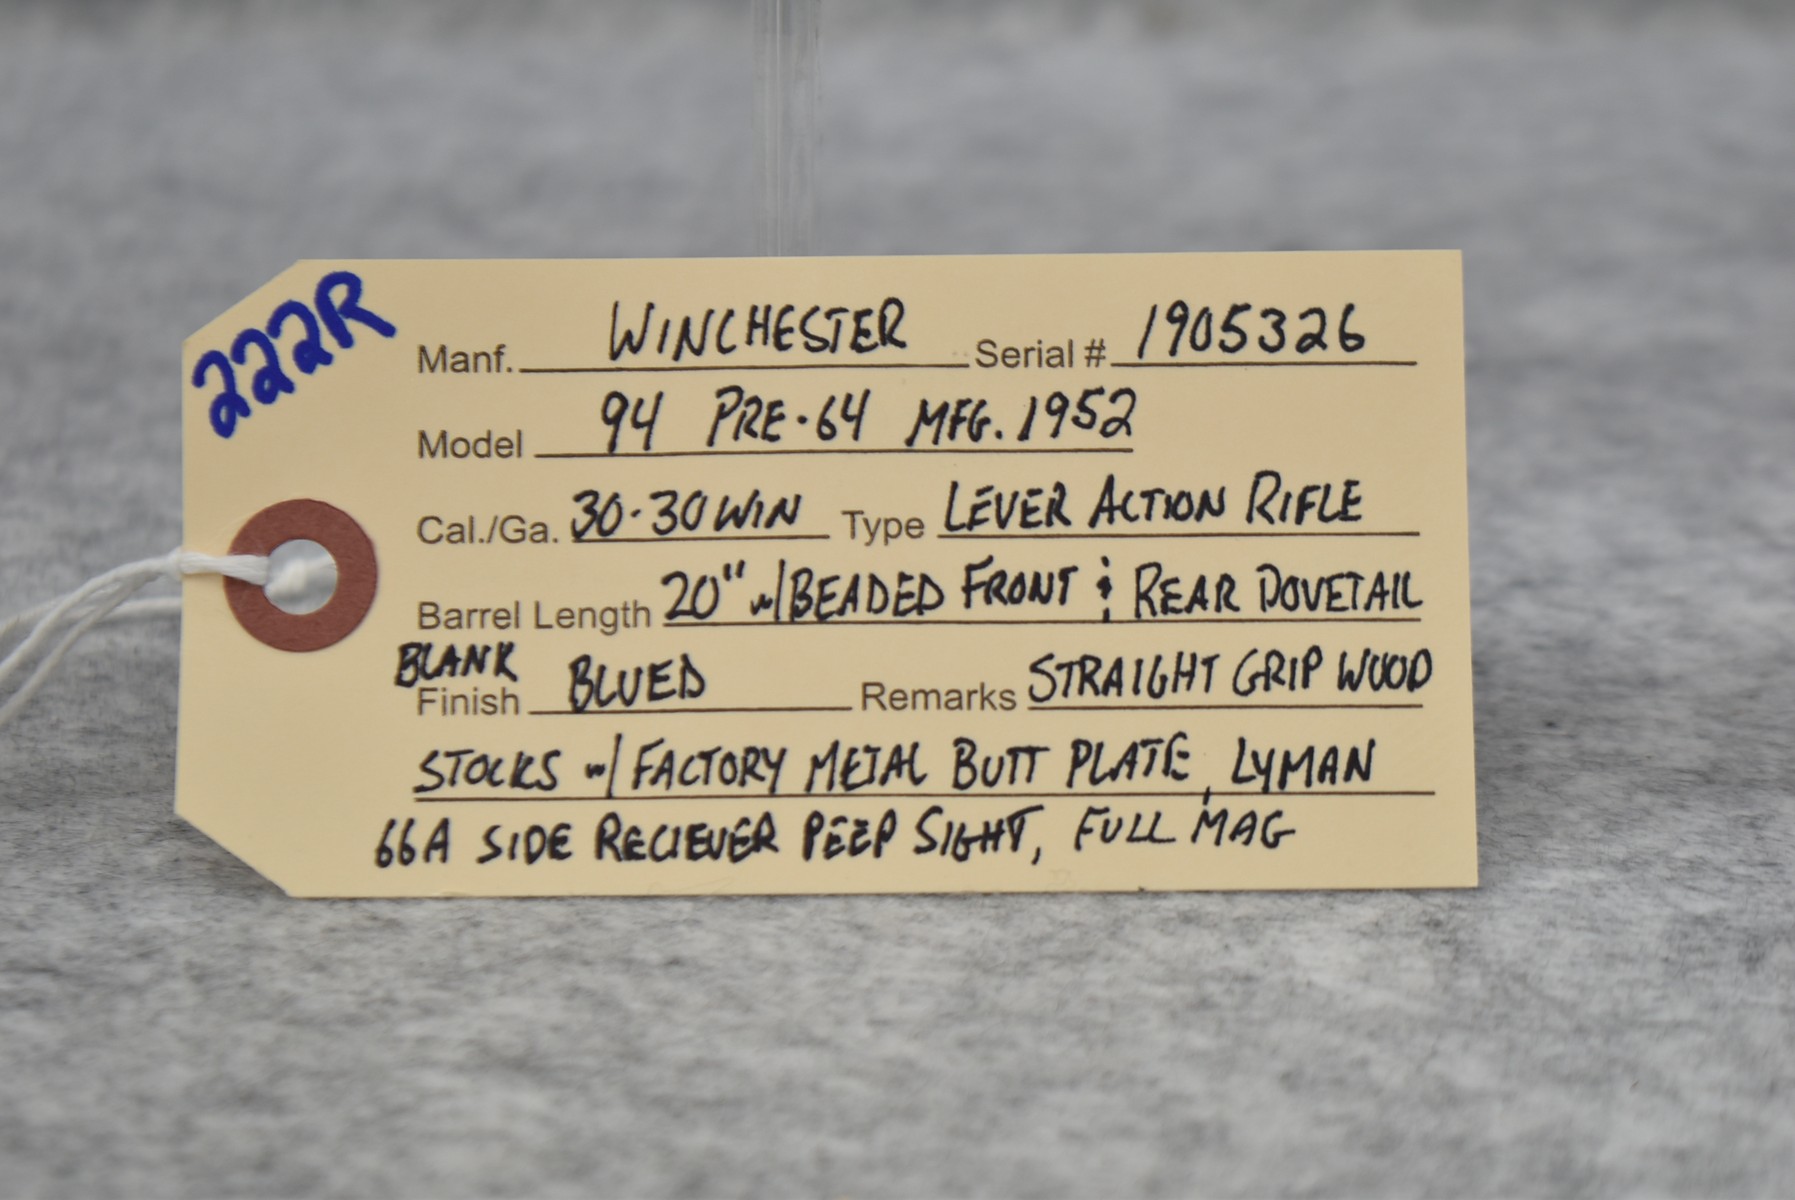 222R
Manf. WINCHESTER Serial # 1905326
Model 94 PRE-64 MFG. 1952
Cal./Ga. 30-30 WIN Type LEVER ACTION RIFLE
Barrel Length 20" w/BEADED FRONT & REAR DOVETAIL
BLANK
Finish BLUED Remarks STRAIGHT GRIP WOOD
STOCKS w/ FACTORY METAL BUTT PLATE, LYMAN
66A SIDE RECIEVER PEEP SIGHT, FULL MAG